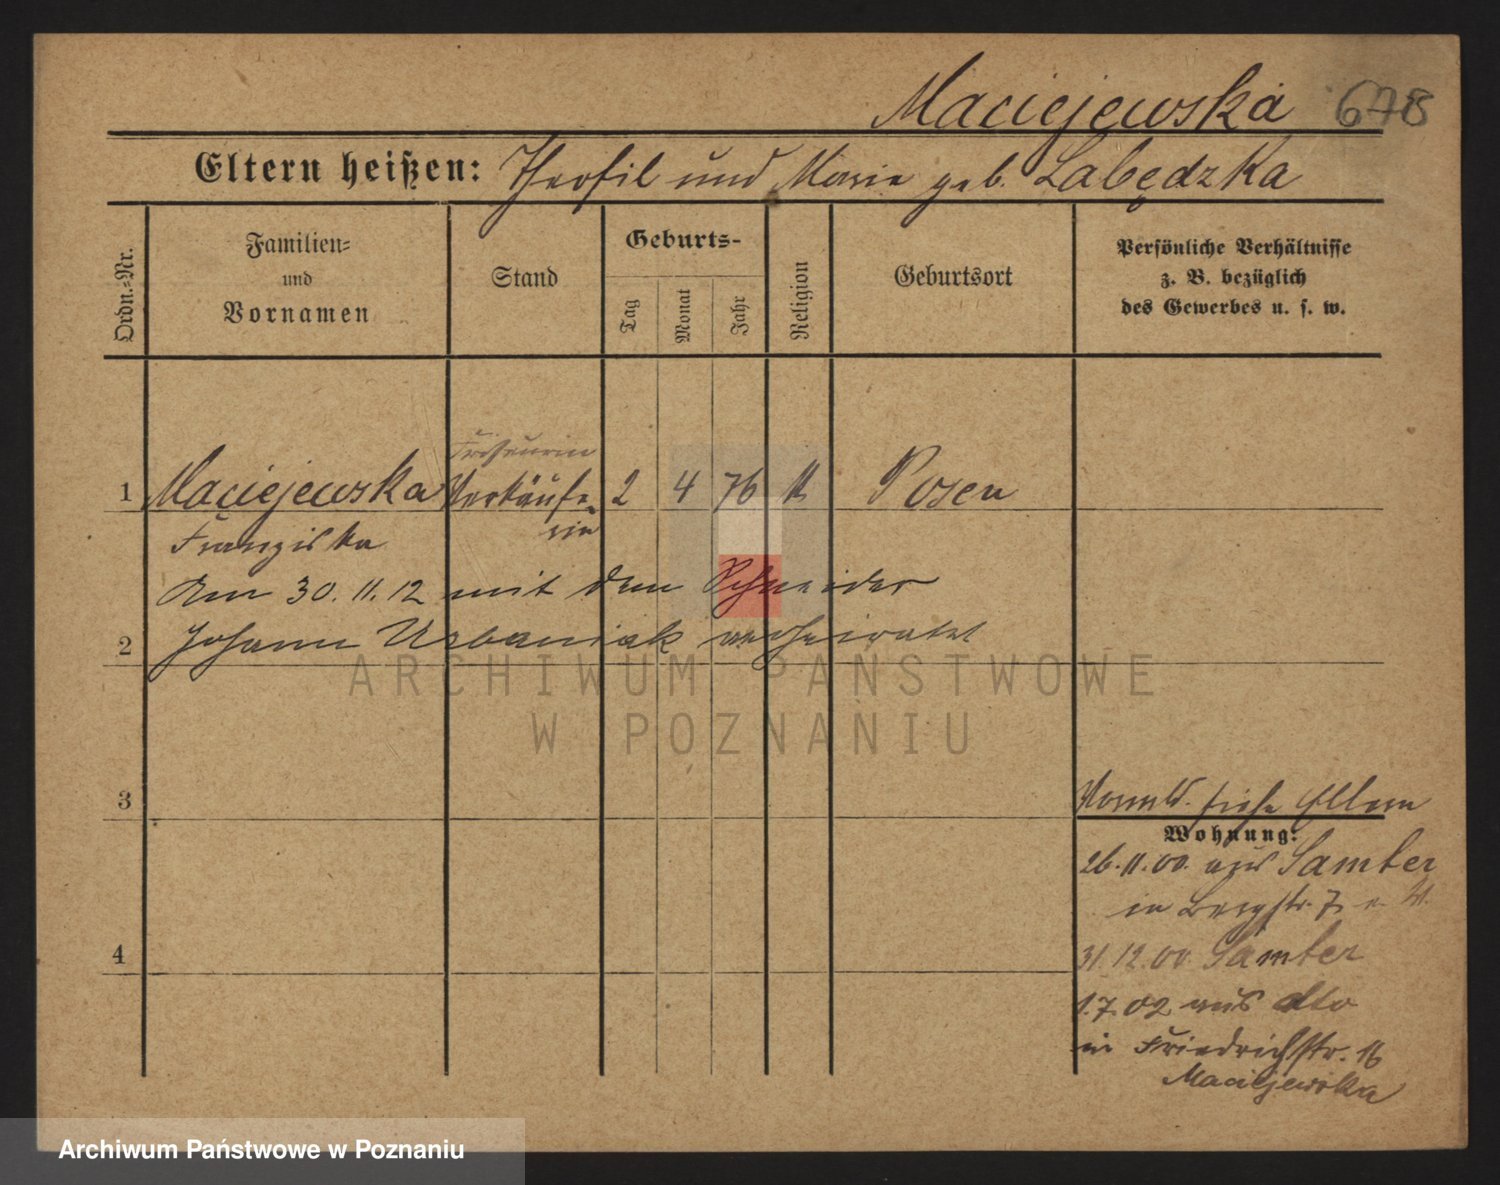 Maciejewska 678
Eltern heißen: Theofil und Marie geb. Łabędzka
Ordn.-Nr.
Familien-
und
Vornamen
Stand
Geburts-
Tag
Monat
Jahr
Religion
Geburtsort
Persönliche Verhältnisse
z. B. bezüglich
des Gewerbes u. s. w.
Friseurin
1 Maciejewska Verkäufe- 2 4 76 k Posen
rin
Franziska
Am 30.11.12 mit dem Schneider
2 Johann Urbaniak verheiratet
ARCHIWUM PAŃSTWOWE
W POZNANIU
3
4
siehe Eltern
Wohnung:
26.11.00. aus Samter
in Bergstr. 7
31.12.00. Samter
1.7.02 aus dto
in Friedrichstr. 16
Maciejewska
Archiwum Państwowe w Poznaniu